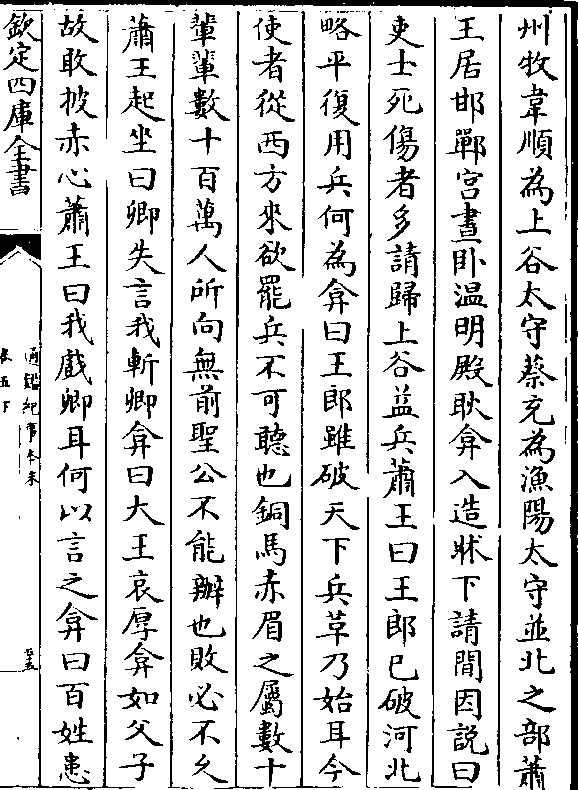 州牧韋順為上谷太守蔡充為漁陽太守並北之部蕭
王居邯鄲宮晝卧温明殿耿弇入造牀下請間因説曰
吏士死傷者多請歸上谷益兵蕭王曰王郎已破河北
略平復用兵何為弇曰王郎雖破天下兵革乃始耳今
使者從西方來欲罷兵不可聽也銅馬赤眉之屬數十
輩輩數十百萬人所向無前聖公不能辦也敗必不久
蕭王起坐曰卿失言我斬卿弇曰大王哀厚弇如父子
故敢披赤心蕭王曰我戲卿耳何以言之弇曰百姓患
欽定四庫全書
通鑑紀事本末
卷五下